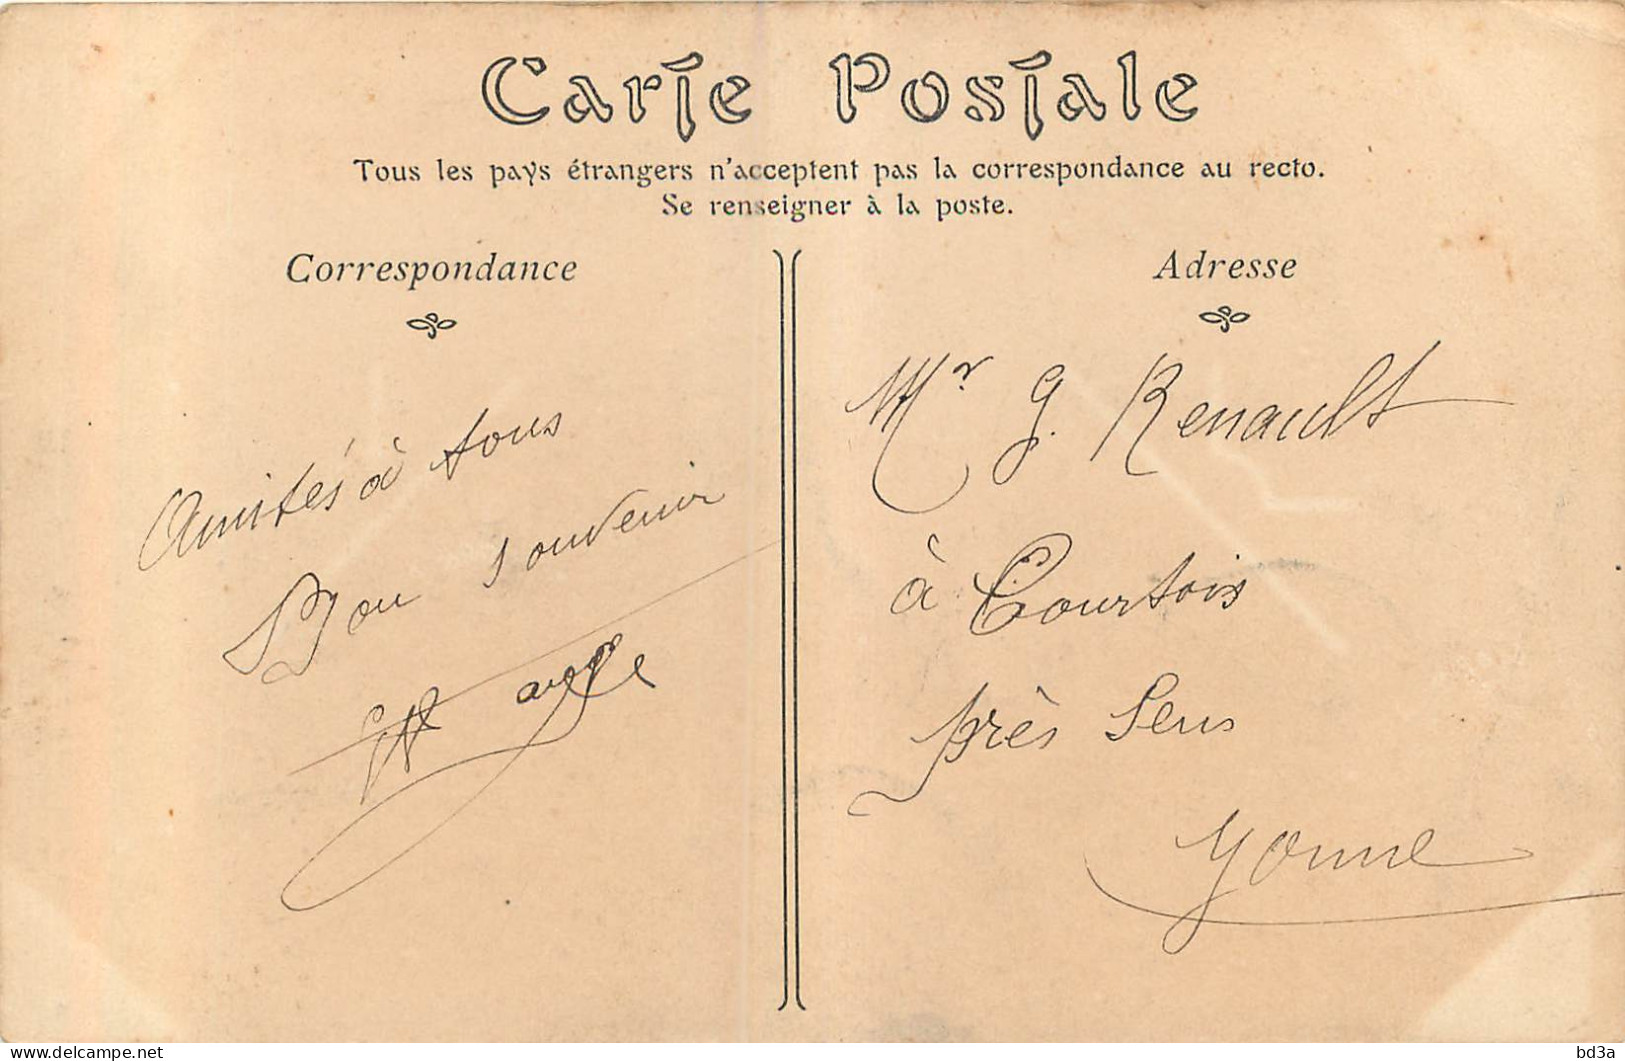 Carte Postale
Tous les pays étrangers n'acceptent pas la correspondance au recto.
Se renseigner à la poste.
Correspondance
Amitiés à tous
Bon souvenir
Adresse
Mr G. Renault
à Courtois
près Sens
Yonne
delcampe.net
bd3a